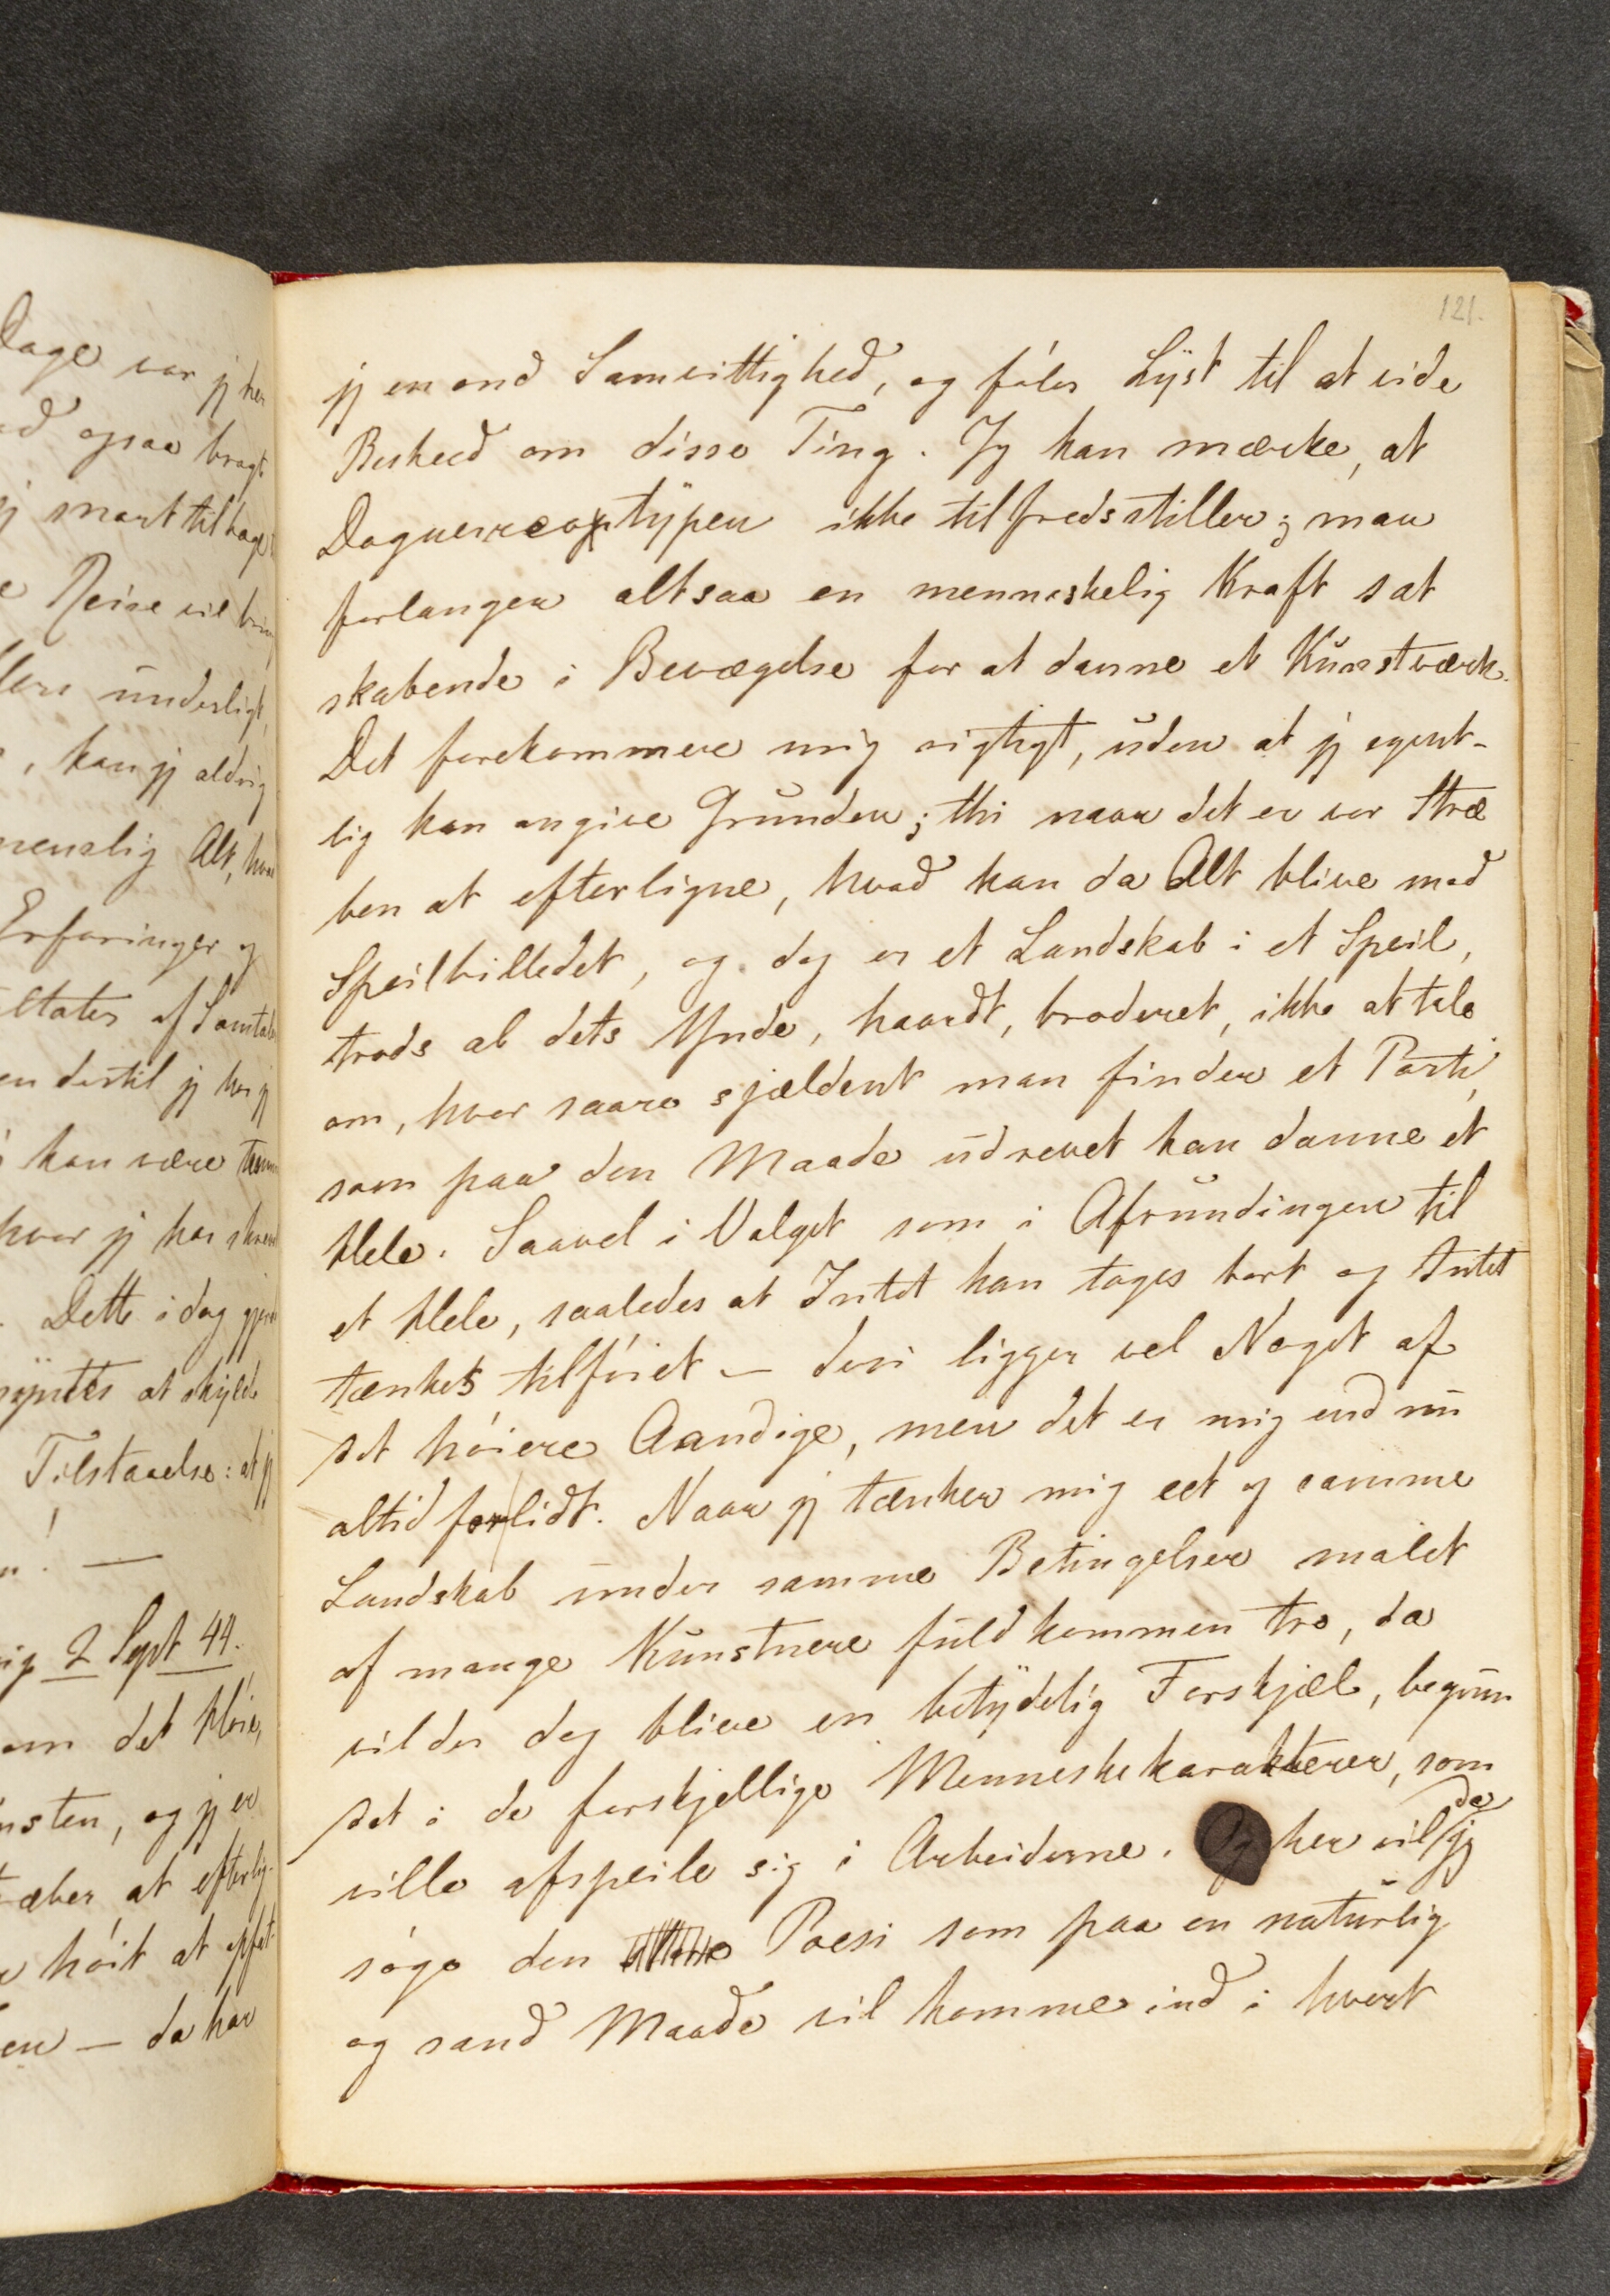 Dage var jeg her
også bragt
jeg snart tilbage
Reise vil
underligt,
, kan jeg aldrig
nemlig Alt, hvad
Erfaringer og
af Samtale
dertil jeg har jeg
kan være
hvor jeg har skrevet
. Dette i dag
syntes at skylde
Tilstaaelse: at jeg
! —
2 Sept 44.
om det Høie,
, og jeg er
at efterlig-
høit at
— da har
121.
jeg en ond Samvittighed, og føler Lyst til at vide
Beskeed om disse Ting. Jeg kan mærke, at
Daguerreotypen ikke tilfredsstiller; man
forlanger altsaa en menneskelig Kraft sat
skabende i Bevægelse for at danne et Kunstværk.
Det forekommer mig rigtigt, uden at jeg egent-
lig kan angive Grunden; thi naar det er vor Stræ
ben at efterligne, hvad kan da Alt blive mod
Speilbilledet, og dog er et Landskab i et Speil,
trods al dets Ynde, haardt, broderet, ikke at tale
om, hvor saare sjældent man finder et Parti,
som paa den Maade udrevet kan danne et
Hele. Saavel i Valget som i Afrundingen til
et Hele, saaledes at Intet kan tages bort og Intet
tænkes tilføiet — deri ligger vel Noget af
det høiere Aandige, men det er mig endnu
altid for lidt. Naar jeg tænker mig eet og samme
Landskab under samme Betingelser malet
af mange Kunstnere fuldkommen tro, da
vil der dog blive en betydelig Forskjæl, begrun
det i de forskjellige Menneskekarakterer, som
ville afspeile sig i Arbeiderne. Og her vil da jeg
søge den Poesi som paa en naturlig
og sand Maade vil komme ind i hvert